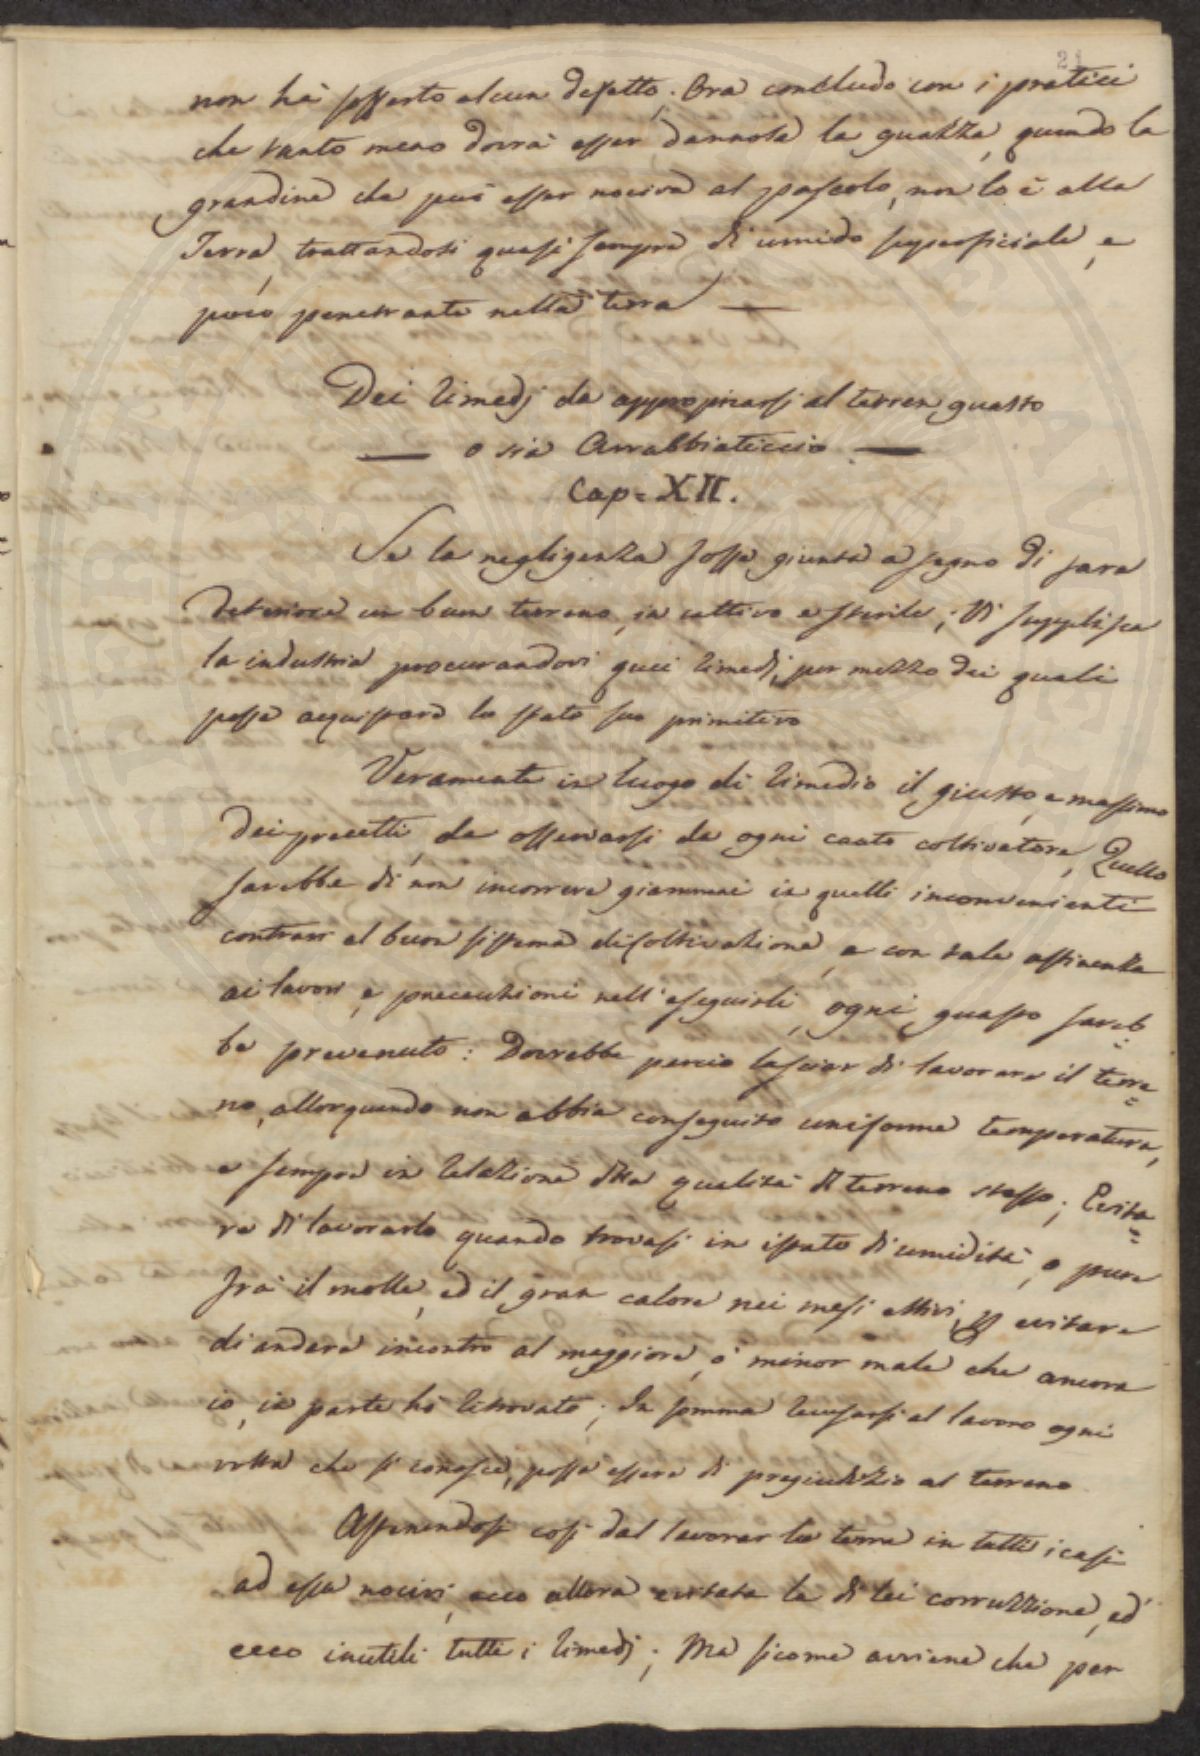 21
non hà sofferto alcun difetto. Ora concludo con i pratici
che tanto meno dovrà esser dannosa la guazza, quando la
grandine che può esser nociva al pascolo, non lo è alla
Terra, trattandosi quasi sempre di umido superficiale, e
poco penetrante nella terra —
Dei rimedj da appropriarsi al terren guasto
— o sia Arrabbiaticcio —
Cap= XII.
Se la negligenza fosse giunta a segno di fare
deteriore un buon terreno, in cattivo e sterile; Vi supplisca
la industria procurandovi quei rimedj, per mezzo dei quali
possa acquistare lo stato suo primitivo
Veramente in luogo di rimedio il giusto, e massimo
dei precetti, da osservarsi da ogni cauto coltivatore, Quello
sarebbe di non incorrere giammai in quelli inconvenienti
contrari al buon sistema di coltivazione, e con tale astinenza
ai lavori, e precauzioni nell'eseguirli, ogni guasto sareb=
be prevenuto: Dovrebbe percio lasciar di lavorare il terre=
no, allorquando non abbia conseguito uniforme temperatura,
e sempre in relazione alla qualità di terreno stesso; Evita=
re di lavorarlo quando trovasi in istato di umidità, o pure
frà il molle, ed il gran calore nei mesi estivi, evitare
di andare incontro al maggiore, o' minor male che ancora
io, in parte hò ritrovato; In somma recusarsi al lavoro ogni
volta che si conosce, possa essere di pregiudizio al terreno
Astenendosi così dal lavorar la terra in tutti i casi
ad essa nocivi, ecco allora evitata la di lei corruzzione, ed
ecco inutili tutti i rimedj; Ma sicome avviene che per